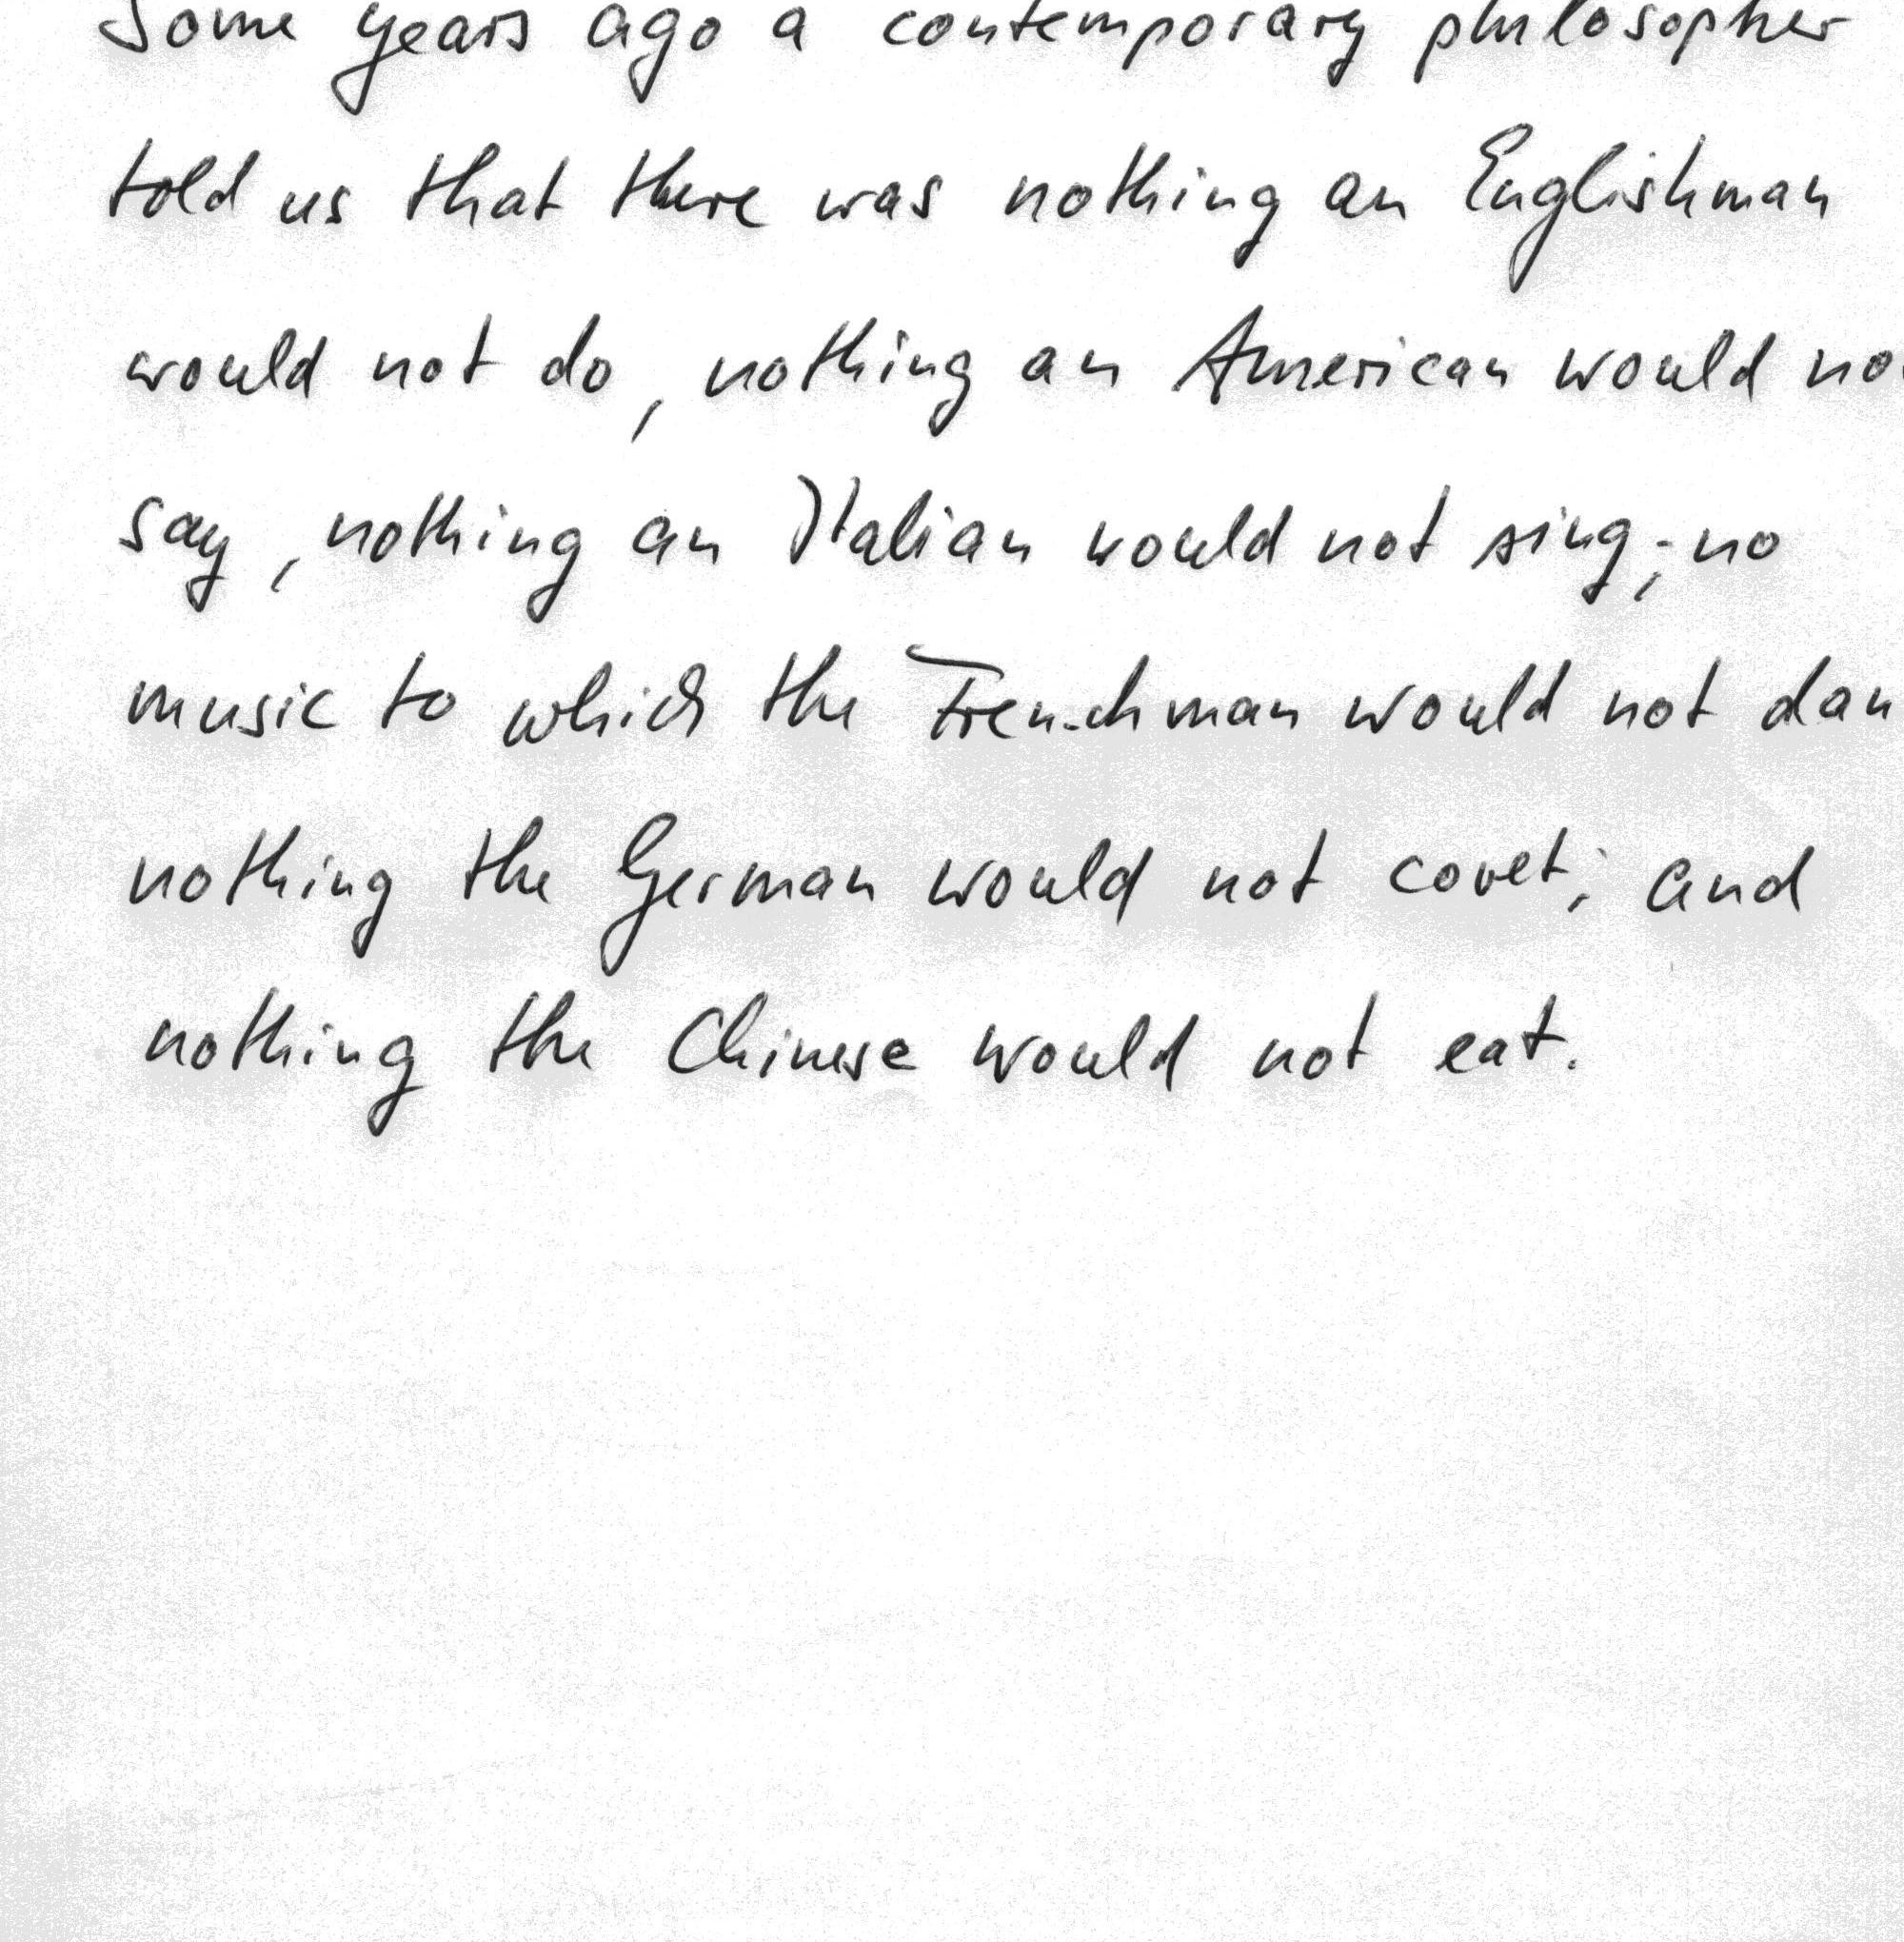 Some years ago a contemporary philosopher
told us that there was nothing an Englishman
would not do, nothing an American would no
say, nothing an Italian would not sing; no
music to which the Frenchman would not dan
nothing the German would not covet; and
nothing the Chinese would not eat.